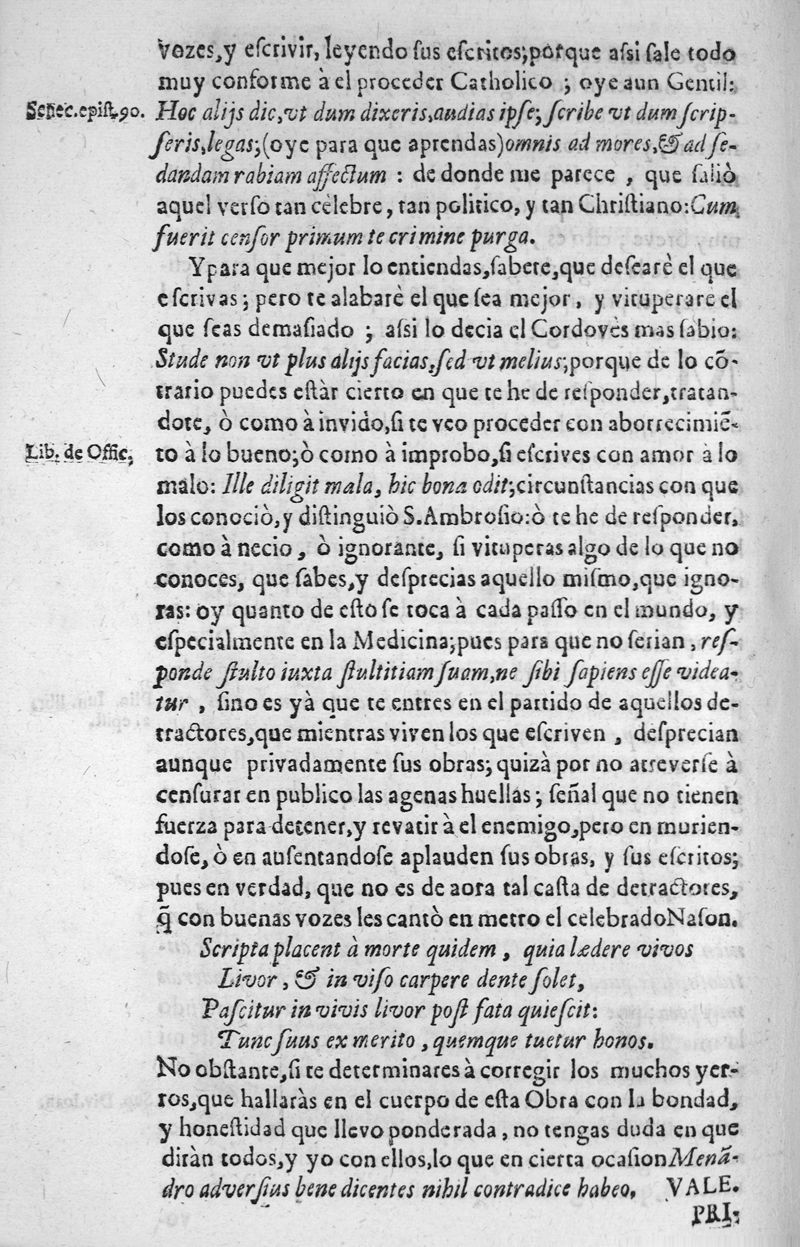 vozes,y eſcrivir, leyendo ſus eſcritos;porque aſsi ſale todo
muy conforme à el proceder Catholico ; oye aun Gentil:
Senec.epiſt.90. Hoc alijs dic,vt dum dixeris,audias ipſe;ſcribe vt dum ſcrip-
ſeris,legas;(oye para que aprendas)omnis ad mores,& ad ſe-
dandam rabiam affectum : de donde me parece , que ſaliò
aquel verſo tan celebre, tan politico, y tan Chriſtiano:Cum
fuerit cenſor primum te crimine purga.
Y para que mejor lo entiendas,ſabete,que deſearè el que
eſcrivas ; pero te alabarè el que ſea mejor, y vituperare el
que ſeas demaſiado ; aſsi lo decia el Cordovès mas ſabio:
Stude non vt plus alijs facias,ſed vt melius;porque de lo cõ-
trario puedes eſtàr cierto en que te he de reſponder,tratan-
dote, ò como à invido,ſi te veo proceder con aborrecimiẽ-
Lib. de Offic, to à lo bueno;ò como à improbo,ſi eſcrives con amor à lo
malo: Ille diligit mala, hic bona odit;circunſtancias con que
los conociò,y diſtinguiò S.Ambroſio:ò te he de reſponder,
como à necio, ò ignorante, ſi vituperas algo de lo que no
conoces, que ſabes,y deſprecias aquello miſmo,que igno-
ras: oy quanto de eſto ſe toca à cada paſſo en el mundo, y
eſpecialmente en la Medicina;pues para que no ſerian, reſ-
ponde ſtulto iuxta ſtultitiam ſuam,ne ſibi ſapiens eſſe videa-
tur , ſino es yà que te entres en el partido de aquellos de-
tractores,que mientras viven los que eſcriven , deſprecian
aunque privadamente ſus obras; quizà por no atreverſe à
cenſurar en publico las agenas huellas ; ſeñal que no tienen
fuerza para detener,y revatir à el enemigo,pero en murien-
doſe, ò en auſentandoſe aplauden ſus obras, y ſus eſcritos;
pues en verdad, que no es de aora tal caſta de detractores,
q̃ con buenas vozes les cantò en metro el celebradoNaſon.
Scripta placent à morte quidem , quia lædere vivos
Livor , & in viſo carpere dente ſolet,
Paſcitur in vivis livor poſt fata quieſcit:
Tunc ſuus ex merito , quemque tuetur honos.
No obſtante,ſi te determinares à corregir los muchos yer-
ros,que hallaràs en el cuerpo de eſta Obra con la bondad,
y honeſtidad que llevo ponderada , no tengas duda en que
diràn todos,y yo con ellos,lo que en cierta ocaſionMenã-
dro adverſius bene dicentes nihil contradice habeo, VALE.
PRI-